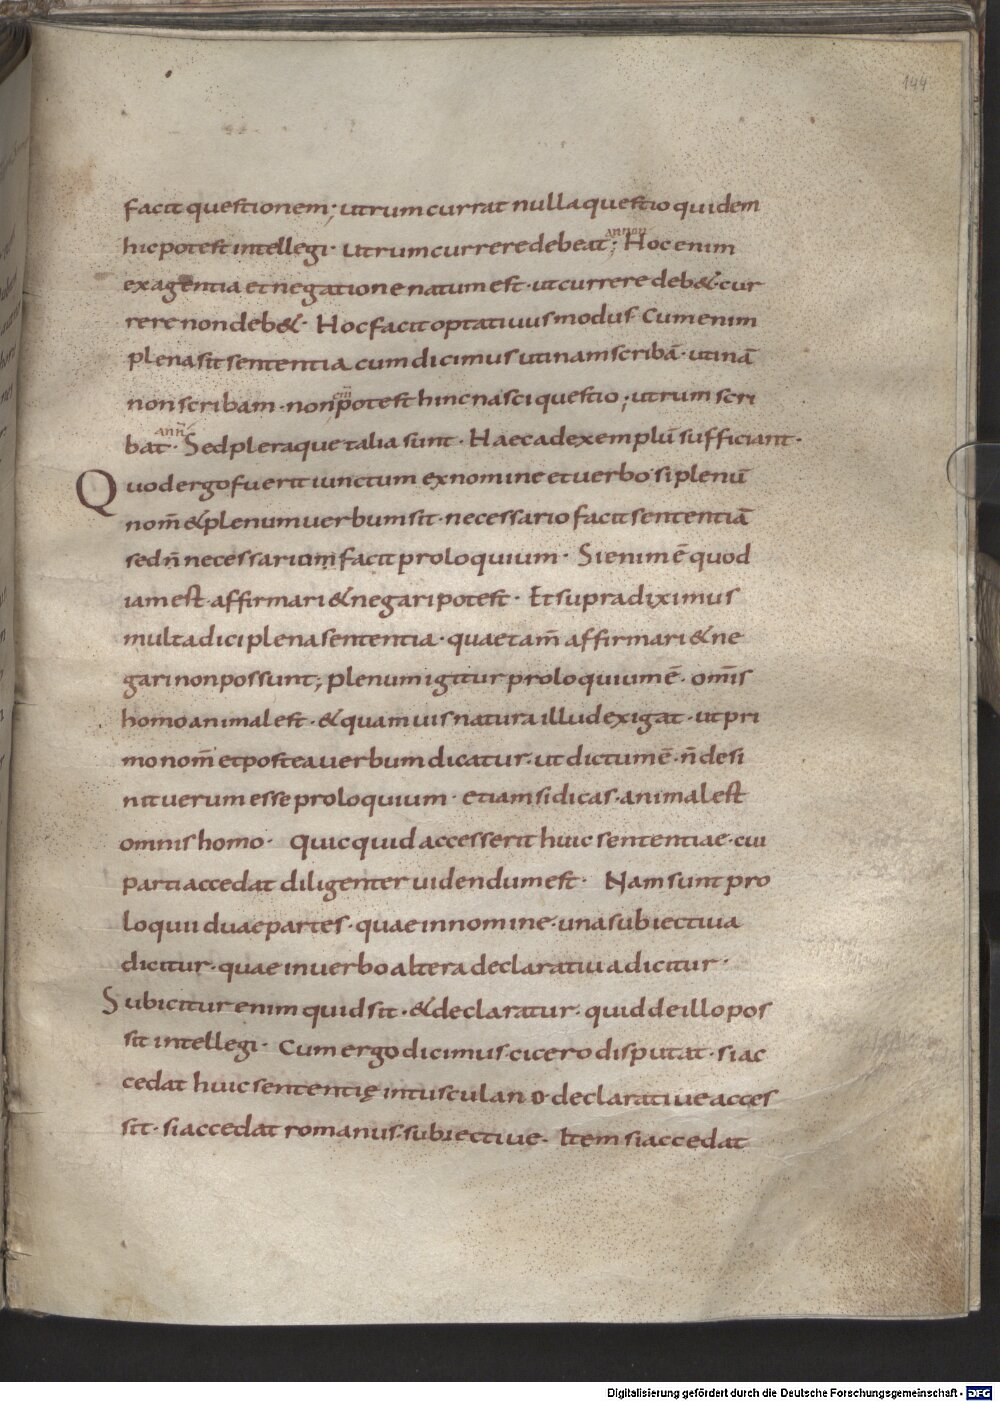 144
facit questionem; utrum currat nulla questio quidem
hic potest intellegi· utrum currere debeat; annon Hoc enim
ex agentia et negatione natum est· ut currere deb&· cur
rere non deb&· Hoc facit optativus modus· Cum enim
plena sit sententia cum dicimus utinam scribā· utinā
non scribam· non potest hinc nasci questio; utrum scri
bat· an n̄ Sed pleraque talia sunt· Haec ad exemplū sufficiant·
Quod ergo fuerit iunctum ex nomine et verbo· si plenū
nom̄ & plenum verbum sit· necessario facit sententiā
sed n̄ necessariom facit proloquium· Si enim ē quod
iam est· affirmari & negari potest· Et supra diximus
multa dici plena sententia· quae tam̄ affirmari & ne
gari non possunt; plenum igitur proloquium ē· om̄is
homo animal est· & quamvis natura illud exigat· ut pri
mo nom̄ et postea verbum dicatur· ut dictum ē· n̄ desi
nit verum esse proloquium· etiam si dicas· animal est
omnis homo· Quicquid accesserit huic sententiae· cui
parti accedat diligenter videndum est· Nam sunt pro
loquii duae partes· quae in nomine· una subiectiva
dicitur· quae in verbo altera declarativa dicitur·
Subicitur enim quid sit· & declaratur· quid de illo pos
sit intellegi· Cum ergo dicimus· cicero disputat· si ac
cedat huic sententię in tusculano· declarative acces
sit· si accedat romanus· subiective· Item si accedat
Digitalisierung gefördert durch die Deutsche Forschungsgemeinschaft - DFG